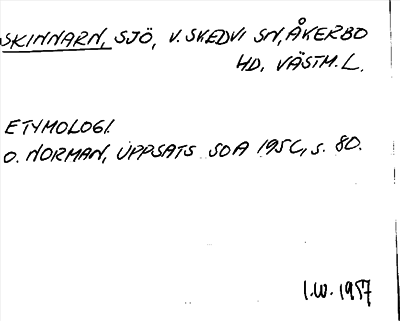 SKINNARN, SJÖ, V. SKEDVI SN, ÅKERBO
HD, VÄSTM. L.
ETYMOLOGI.
O. NORMAN, UPPSATS SOA 195C, S. 80.
I.W. 1957